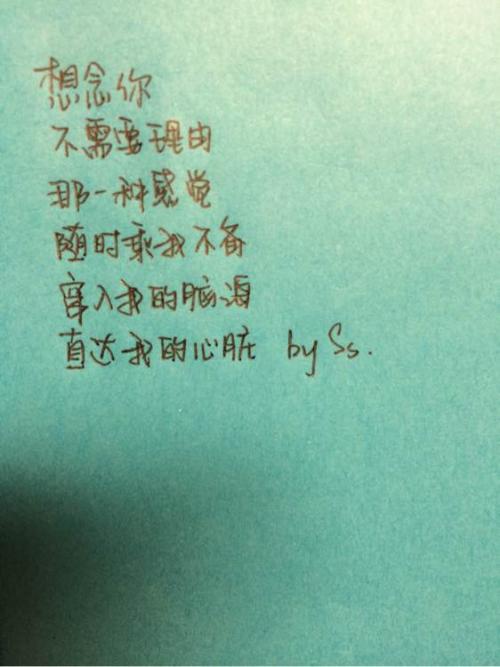 想念你
不需要理由
那一种感觉
随时乘我不备
穿入我的脑海
直达我的心脏 by Ss.